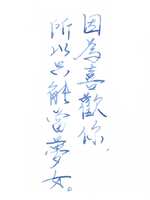 因為喜歡你，
所以只能當夢女。